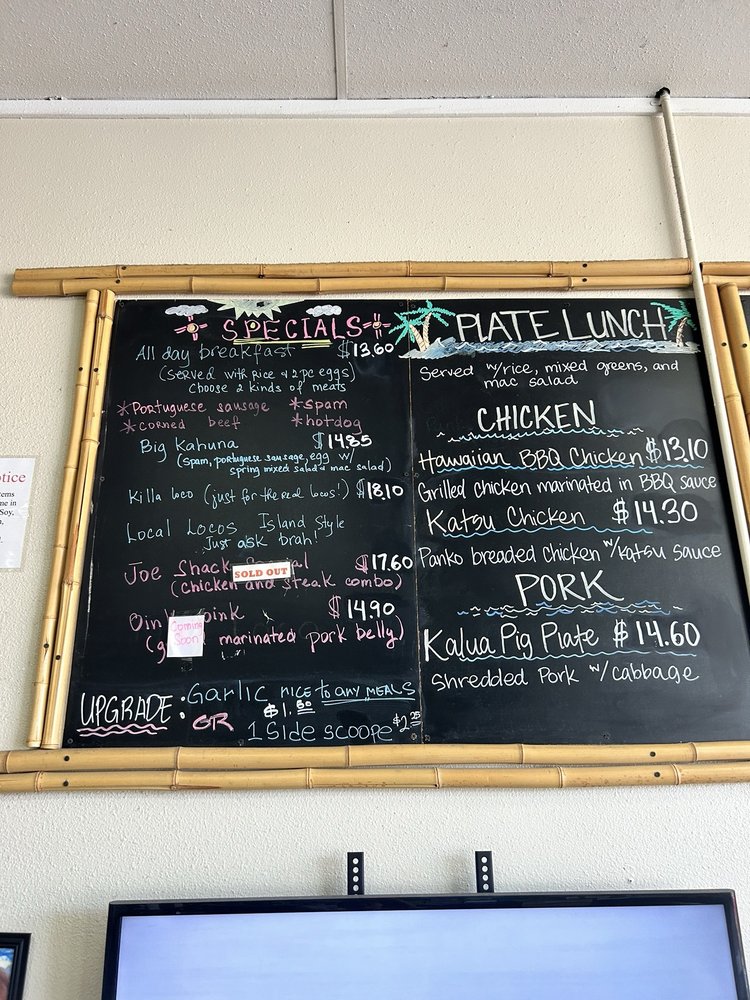 SPECIALS
All day breakfast $13.60
(served with rice & 2 pc eggs)
Choose 2 kinds of meats
*Portuguese sausage *spam
*corned beef *hotdog
Big Kahuna $14.85
(spam, portuguese sausage, egg w/
spring mixed salad & mac salad)
Killa loco (just for the real locos!) $18.10
Local Locos Island Style
Just ask brah!
Joe Shack $17.60
SOLD OUT
(chicken and steak combo)
Oink oink $14.90
Coming
Soon
marinated pork belly)
UPGRADE: Garlic rice to any MEALS
$1.50
OR
1 Side scoope $2.25
PLATE LUNCH
Served w/rice, mixed greens, and
mac salad
CHICKEN
Hawaiian BBQ Chicken $13.10
Grilled chicken marinated in BBQ sauce
Katsu Chicken $14.30
Panko breaded chicken w/katsu sauce
PORK
Kalua Pig Plate $14.60
Shredded Pork w/cabbage
otice
ems
me in
Soy,